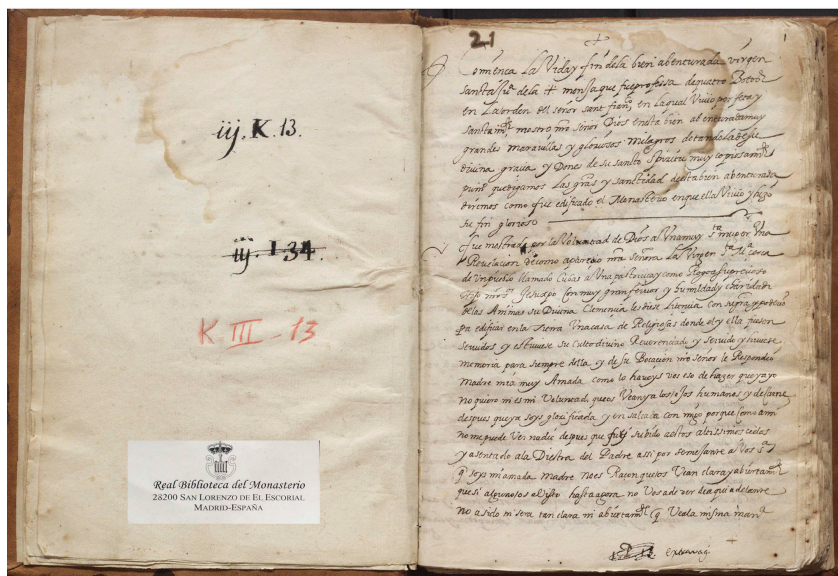 iij. K. 13.
iij. I. 34.
K. III - 13
Real Biblioteca del Monasterio
28200 SAN LORENZO DE EL ESCORIAL
MADRID-ESPAÑA
21
1
Comiença La Vida y fin de la bien abenturada virgen
sancta Juª de la + monja que fue professa de quatro
en La orden del señor sant franco en La qual Vivio perfeta y
sanctamte mostro nro Señor Dios en esta bien abenturada muy
grandes maravillas y gloriosos milagros dotandola de su
divina gracia y Dones de su sancto Spiritu muy copiosamte
quedigamos Las grªs y sanctidad desta bien abenturada
diremos como fue edificado el Monasterio en que ella Vivio y hizo
su fin glorioso
fue mostrado por la Voluntad de Dios a Una muy sta muger Una
Revelacion de como aparecio nra señora La Virgen sta Mª cerca
de Un pueblo llamado Cubas a Una pastorcica y como Rogo a su precioso
hijo nro Jesuxpo con muy gran fervor y humildad y charidad
de las Animas su Divina Clemencia les diese Licencia con
pa edificar en la tierra Una casa de Religiosas donde el y ella fuesen
servidos y estuviese su culto divino Reverenciado y servido y tuviese
memoria para siempre della y de su Vocacion nro señor le Respondio
Madre mia muy Amada como lo haveys vos eso de hazer que ya yo
no quiero ni es mi Voluntad que os Vean ya los ojos humanos
despues que ya soys glorificada y en salcada con migo porque como ami
no me puede Ver nadie despues que fuy subido a estos altissimos cielos
y asentado a la Diestra del Padre assi por semejante a Vos
q soys mi amada madre no es Raçon que os Vean clara y abiertamte
que si algunos os a Visto hasta agora no Vos a de ver de aqui adelante
no a sido ni sera tan clara ni abiertamte q Vea la misma manª